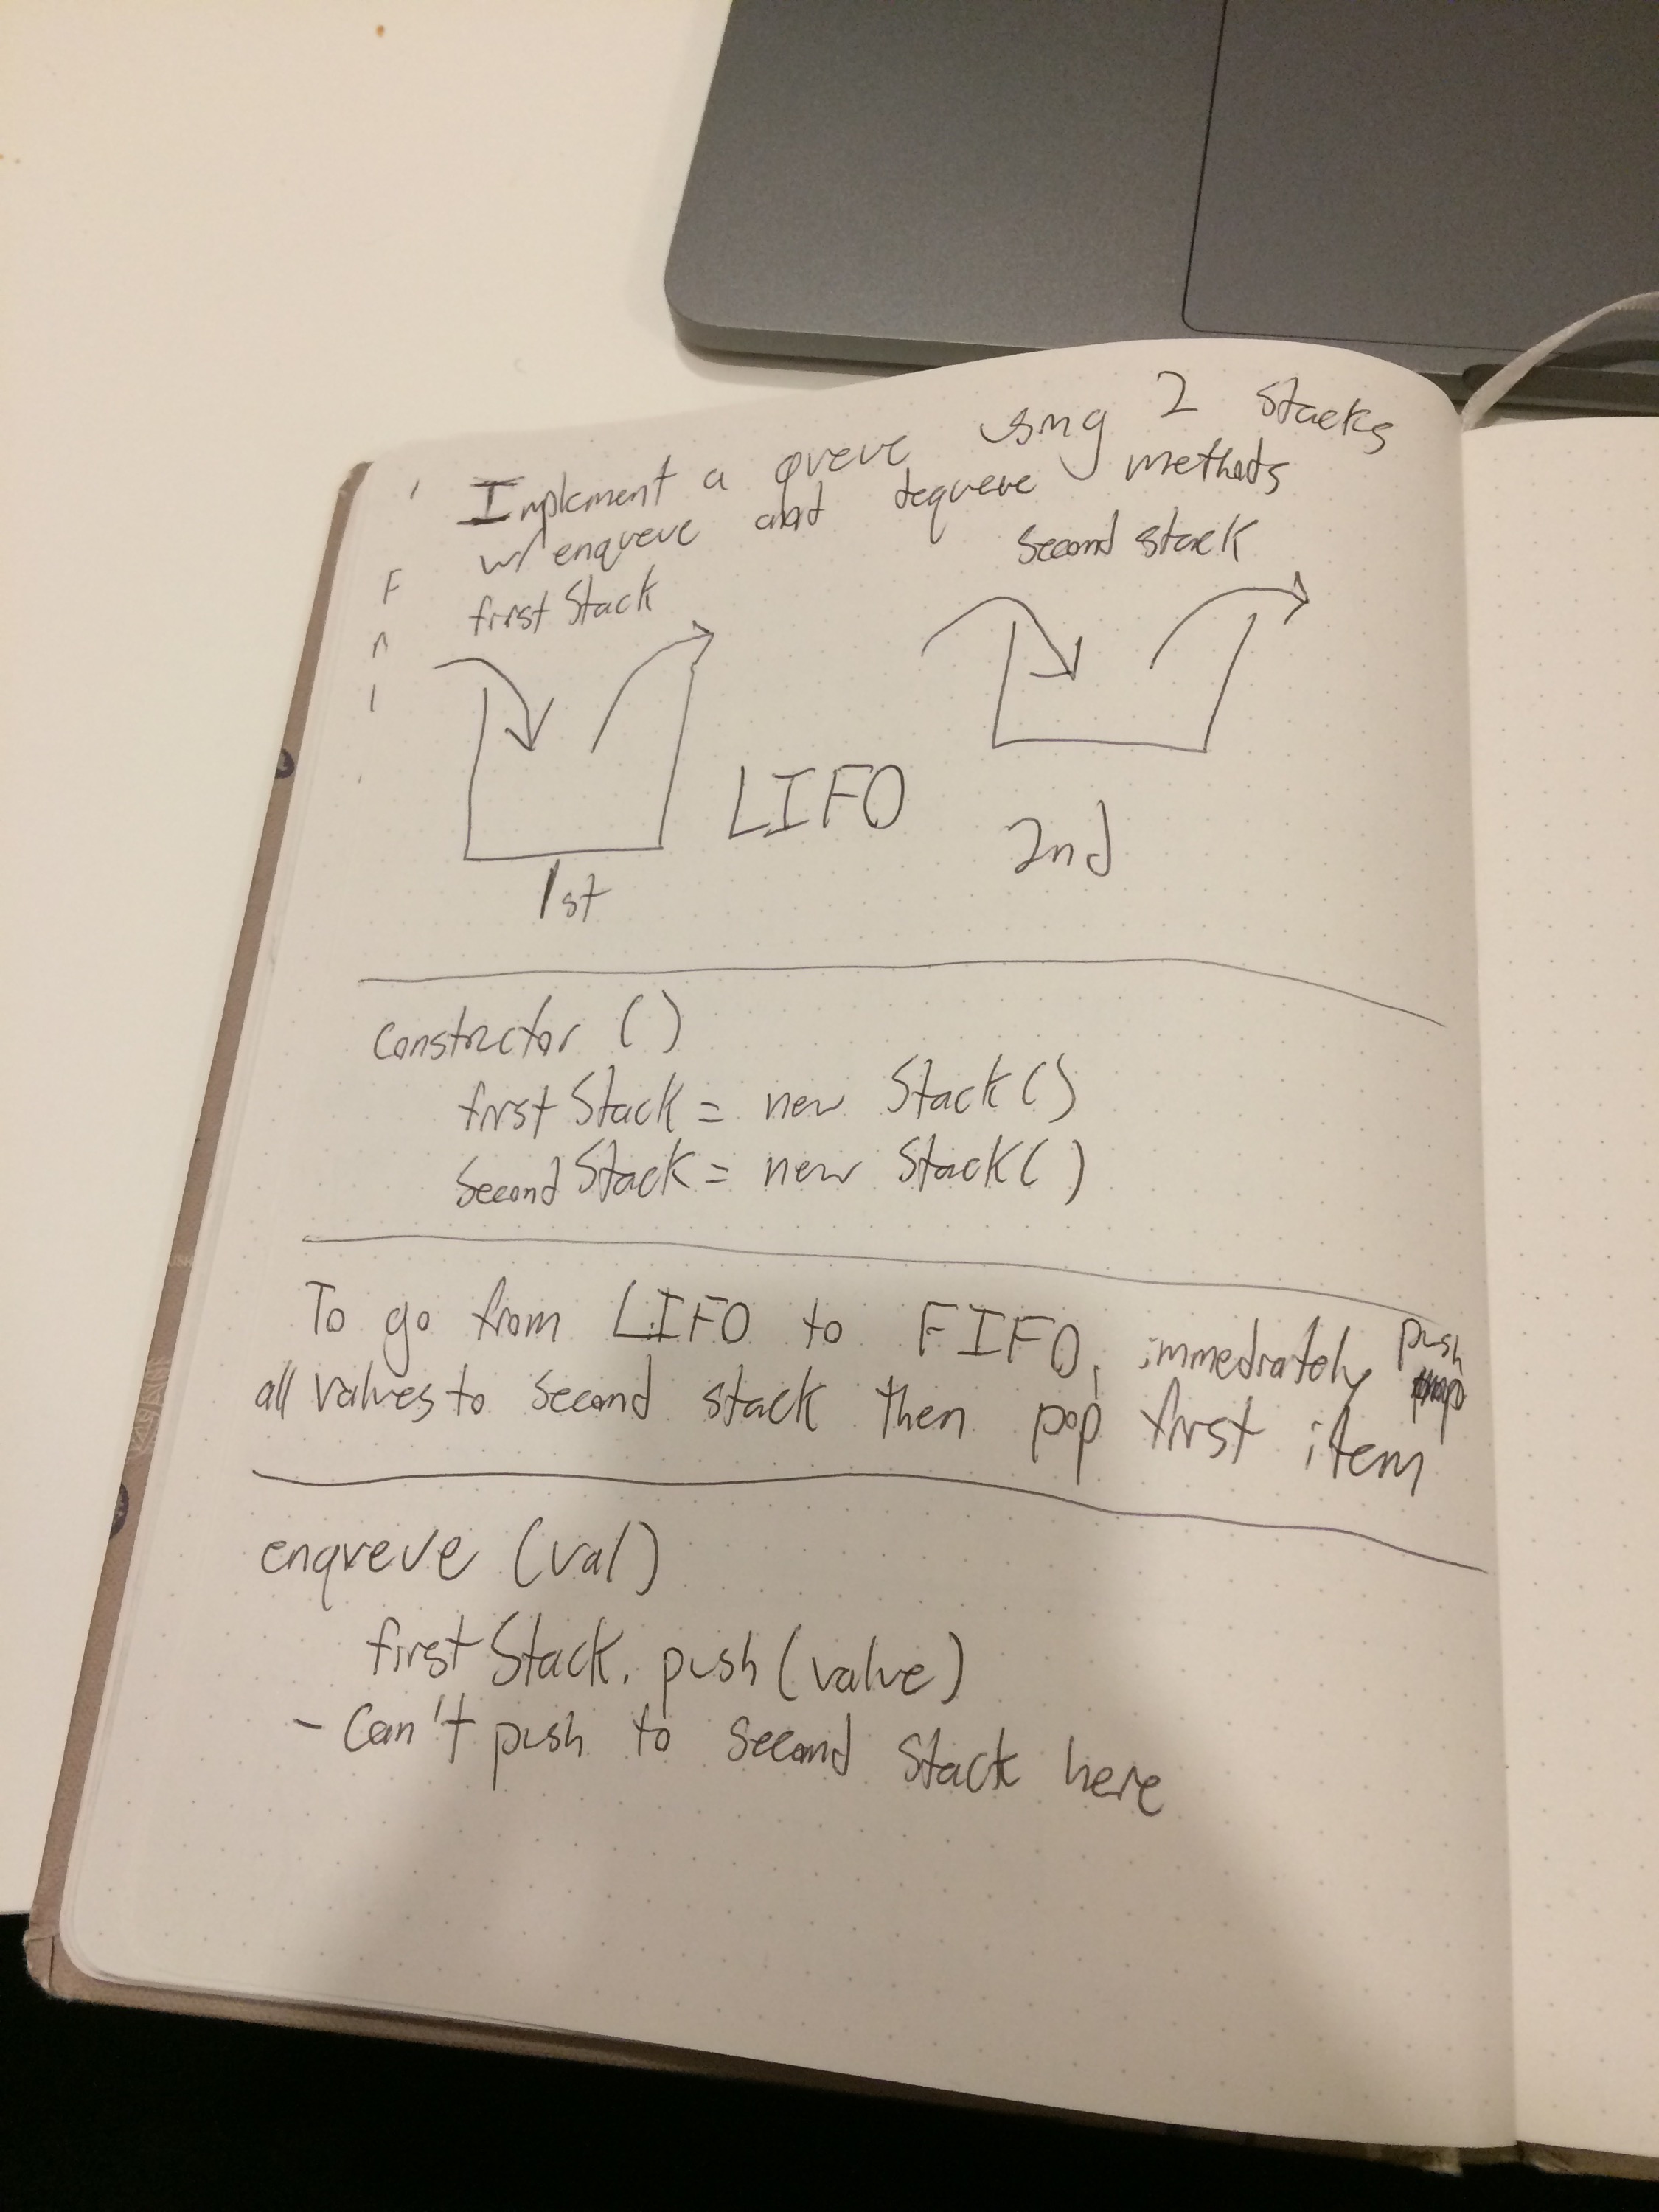 Implement a queue using 2 stacks
w/ enqueue and dequeue methods
first Stack
second stack
LIFO
1st
2nd
constructor ()
first Stack = new Stack()
Second Stack = new Stack()
To go from LIFO to FIFO, immediately push
all values to second stack then pop first item
enqueue (val)
first Stack. push (value)
- Can't push to second stack here